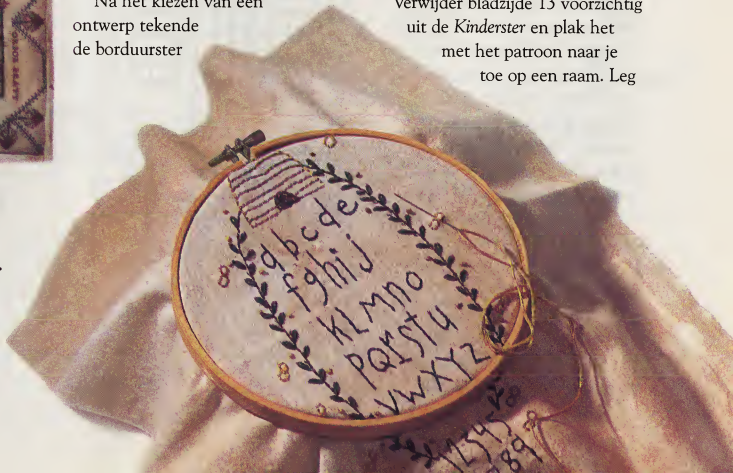 Na het kiezen van een
ontwerp tekende
de borduurster
verwijder bladzijde 13 voorzichtig
uit de Kinderster en plak het
met het patroon naar je
toe op een raam. Leg
abcde
fghij
KLMNO
PQRSTU
VWXYZ
12345
789